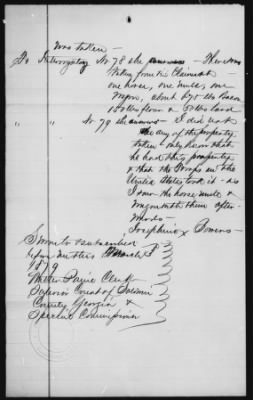 was taken —
To Interrogatory No 78 she answers — There was
taken from the Claimant —
one horse, one mule, one
wagon, about 675 lbs Bacon
150 lbs flour & 50 lbs lard
" " No 79 she answers — I did not
see any of the property
taken — only know that
he had this property
& that the Troops in the
United States took it — as
I saw the horse mule &
wagon with them after-
wards —
Josephine x Bowens —
Sworn to & subscribed
before me this March
1879
Walter Paine Clerk
Superior Court of Baldwin
County Georgia &
Special Commissioner